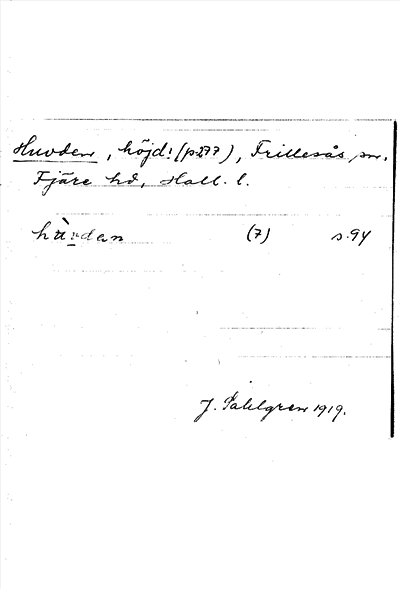 Huvden, höjd! (p. 277), Frillesås sn.
Fjäre hd, Hall. l.
hùvdan (7) s. 94
J. Sahlgren 1919.